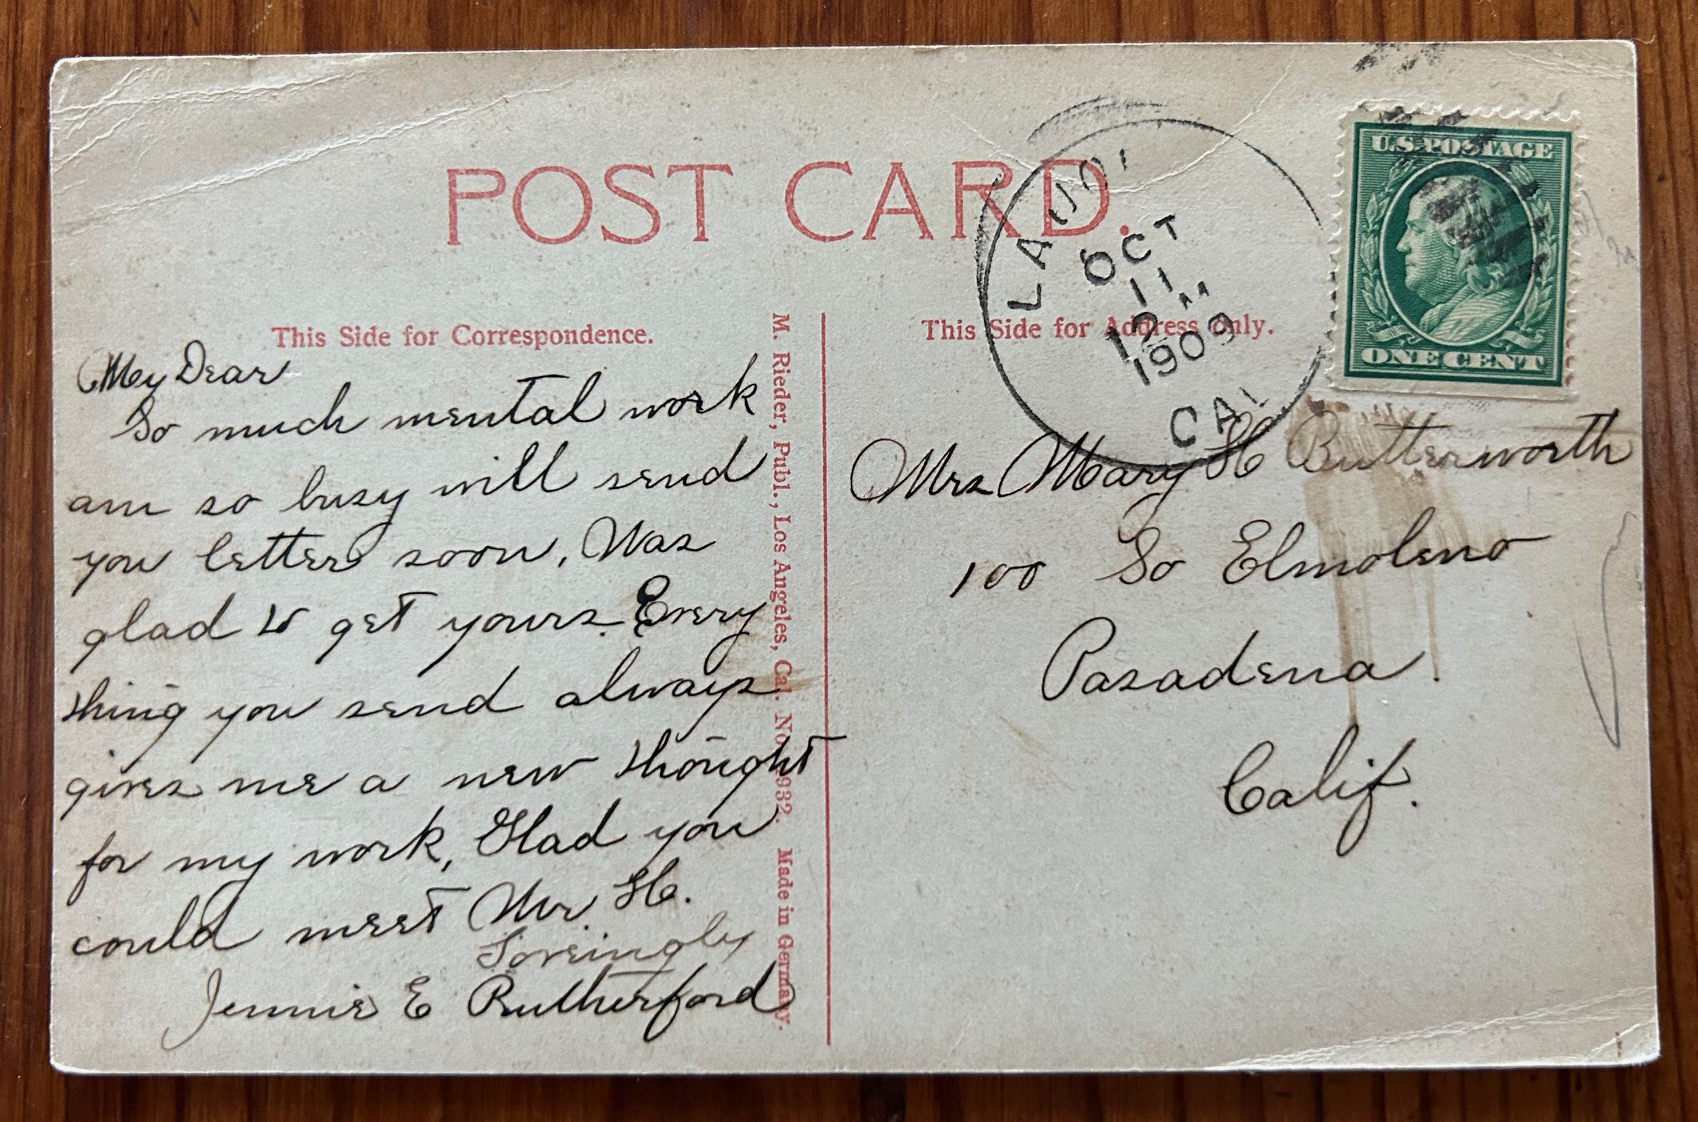 POST CARD.
This Side for Correspondence.
My Dear
So much mental work
am so busy will send
you letter soon, Was
glad to get yours. Every
thing you send always
gives me a new thought
for my work, Glad you
could meet Mr H.
Loveingly
Jennie E Rutherford
M. Rieder, Publ., Los Angeles, Cal. No. 3932. Made in Germany.
This Side for Address only.
OCT
11
M
1909
CAL
U.S. POSTAGE
ONE CENT
Mrs Mary H Butterworth
100 So Elmoleno
Pasadena.
Calif.